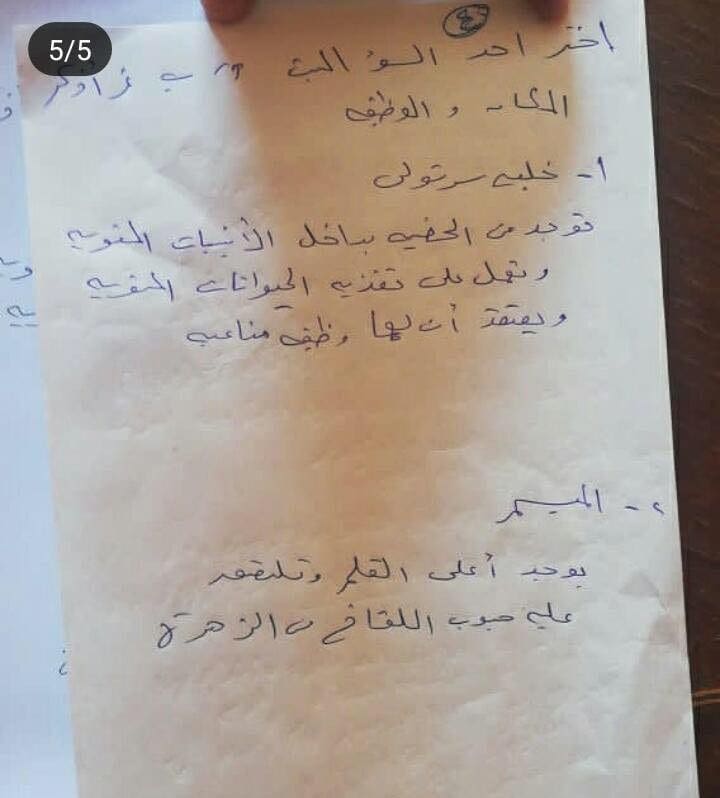 5/5
٤
اختر احد السؤالين أ، ب ثم أذكر
المكان و الوظيفه
أ- خليه سرتولي
توجد في الخصيه بداخل الأنيبيات المنويه
وتعمل على تغذيه الحيوانات المنويه
ويعتقد أن لها وظيفه مناعيه
٢- الميسم
يوجد أعلى القلم وتلتصق
عليه حبوب اللقاح من الزهرة